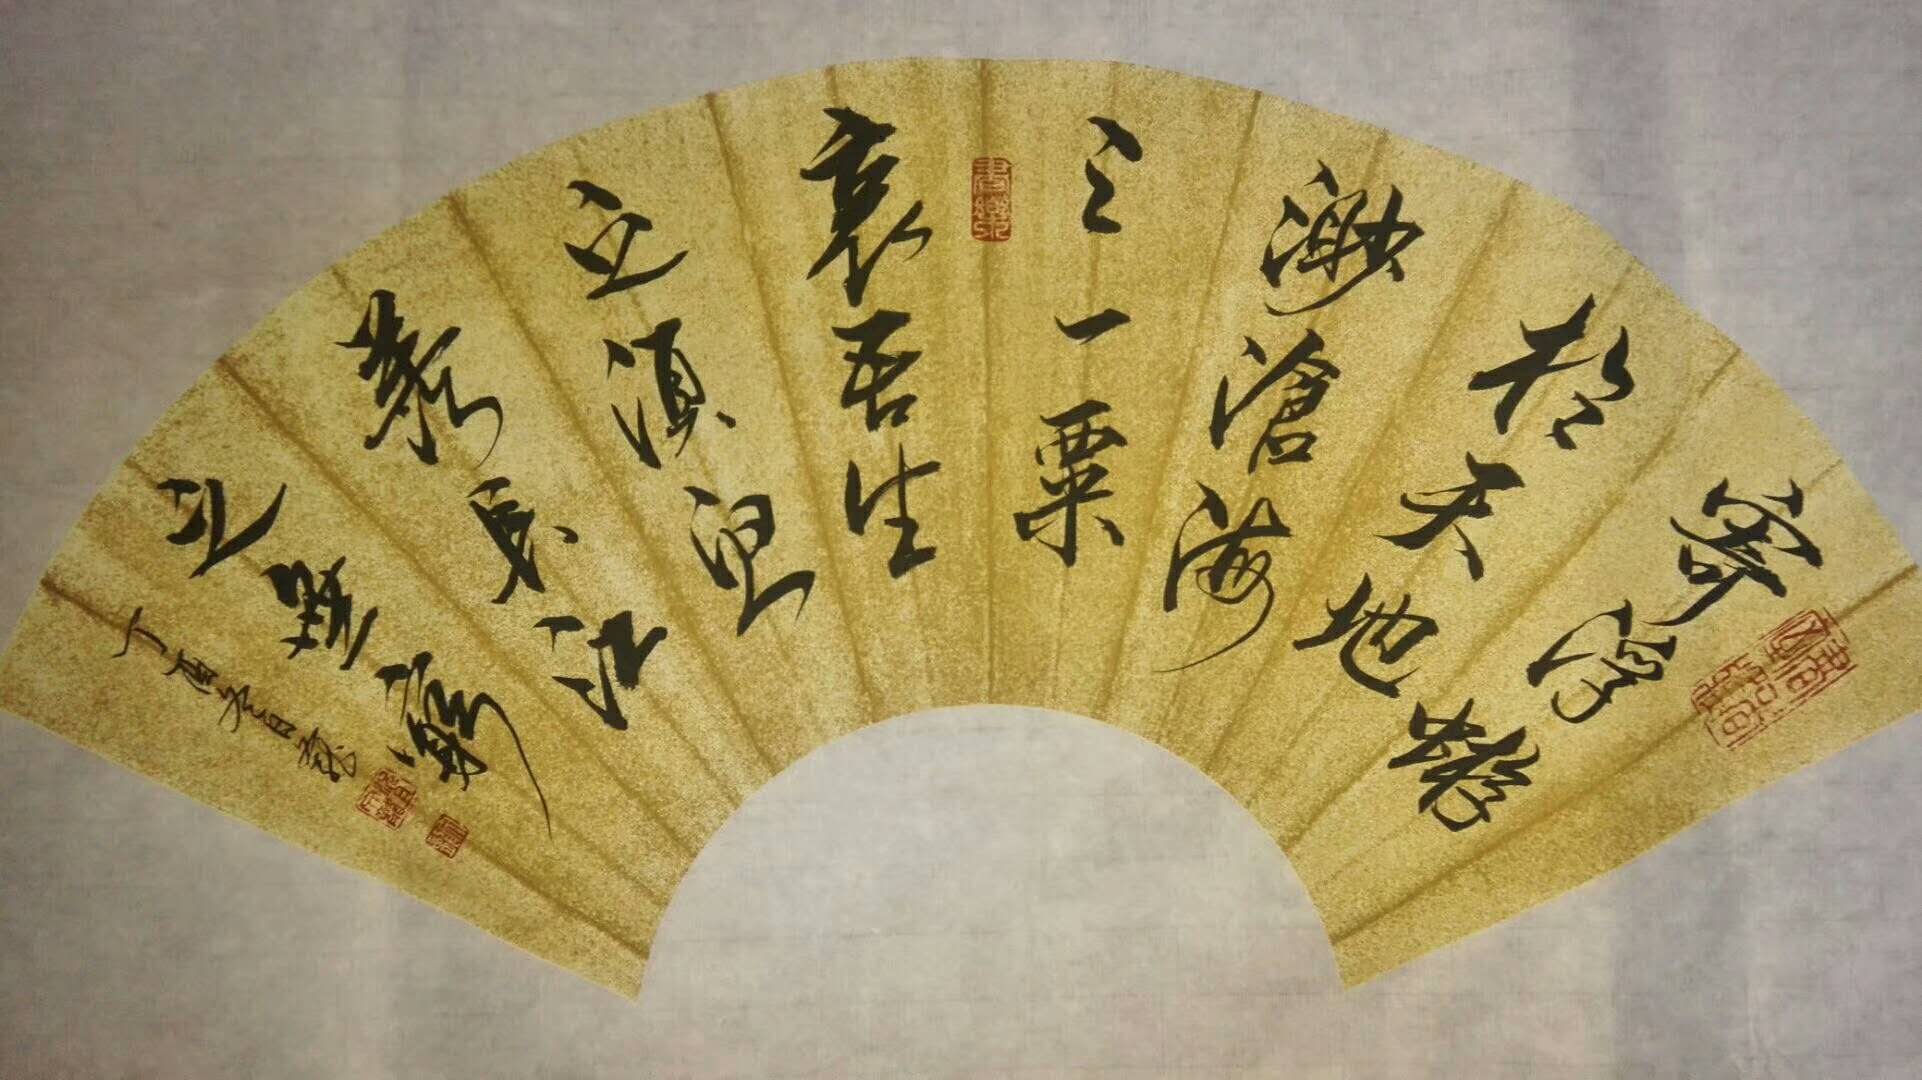 寄浮蝣
於天地
渺滄海
之一粟
哀吾生
之須臾
羨長江
之無窮
丁酉